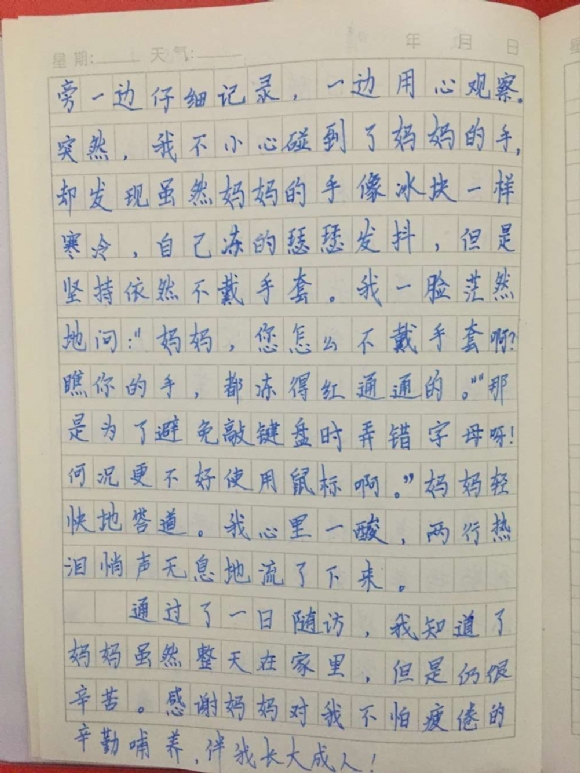 星期: 天气: 年 月 日
旁一边仔细记录，一边用心观察。
突然，我不小心碰到了妈妈的手，
却发现虽然妈妈的手像冰块一样
寒冷，自己冻的瑟瑟发抖，但是
坚持依然不戴手套。我一脸茫然
地问："妈妈，您怎么不戴手套啊？
瞧你的手，都冻得红通通的。""那
是为了避免敲键盘时弄错字母呀！
何况更不好使用鼠标啊。"妈妈轻
快地答道。我心里一酸，两行热
泪悄声无息地流了下来。
通过了一日随访，我知道了
妈妈虽然整天在家里，但是仍很
辛苦。感谢妈妈对我不怕疲倦的
辛勤哺养，伴我长大成人！